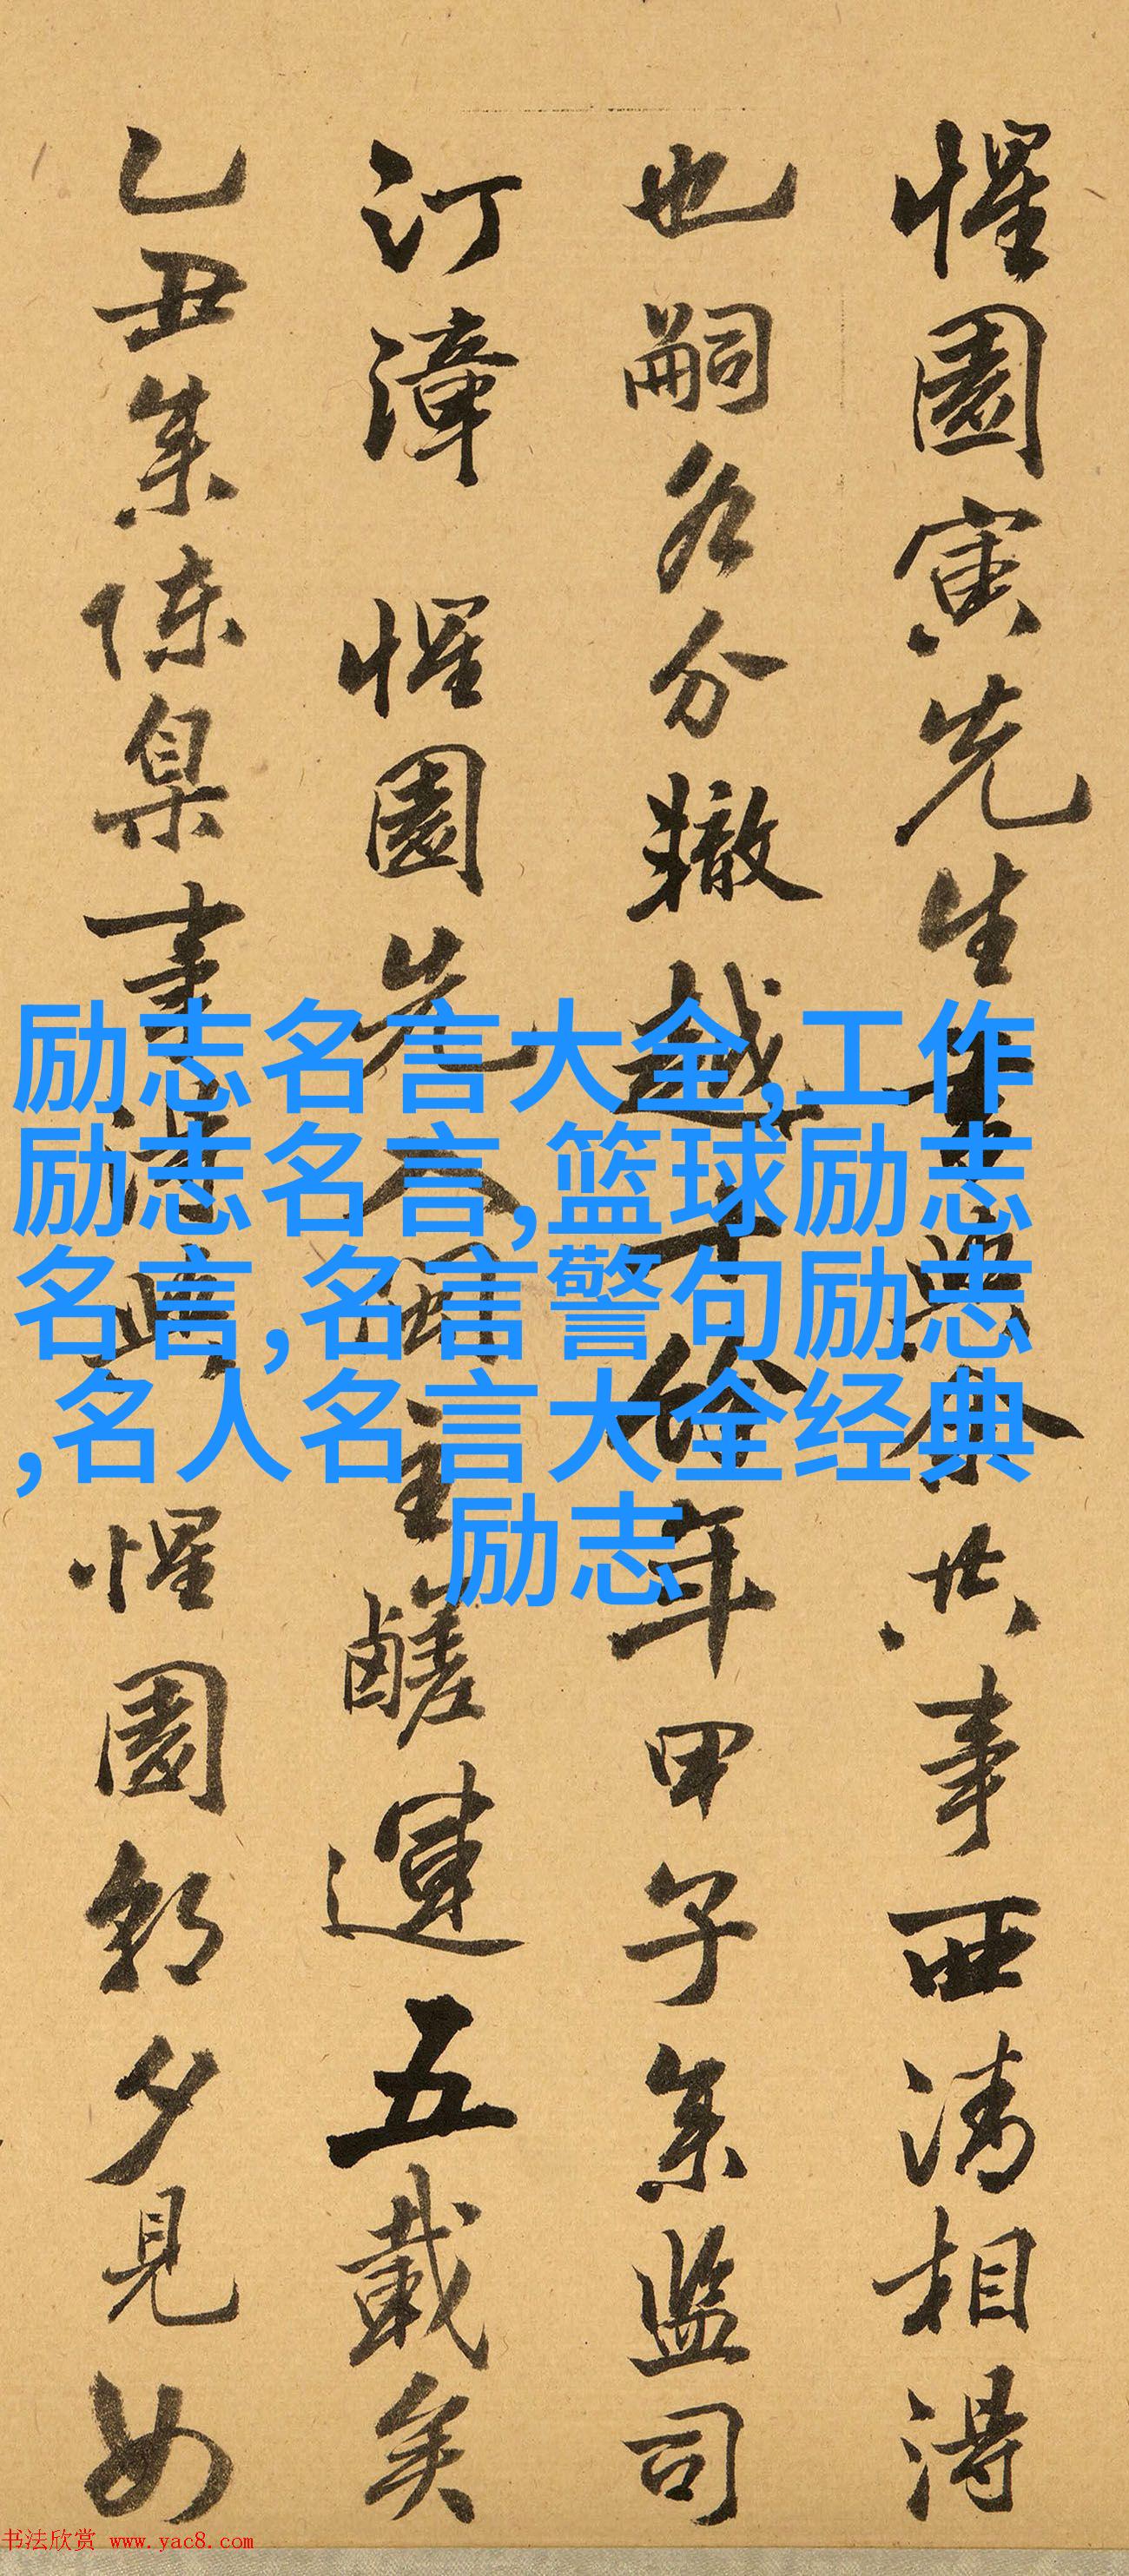 惺園寅先生
共事西清相得
也嗣各分轍越
年甲子余监司
汀漳 惺園先
五載矣
乙丑余陳臬事
惺園朝夕見如
励志名言大全,工作
励志名言,篮球励志
名言,名言警句励志
,名人名言大全经典
励志
书法欣赏 www.yac8.com